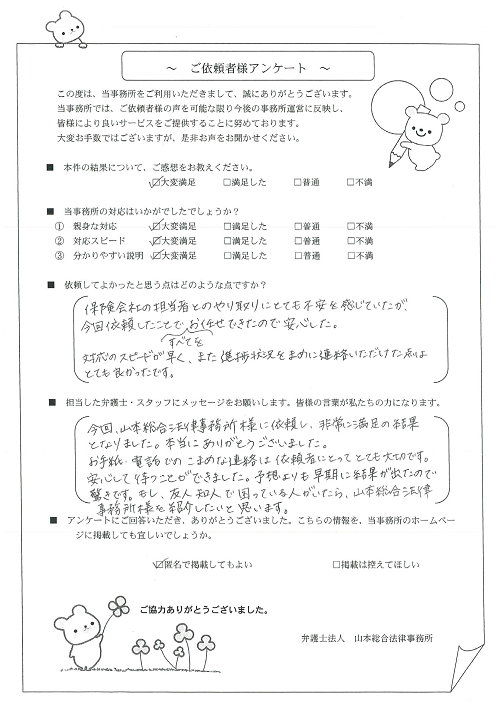 ～ ご依頼者様アンケート ～
この度は、当事務所をご利用いただきまして、誠にありがとうございます。
当事務所では、ご依頼者様の声を可能な限り今後の事務所運営に反映し、
皆様により良いサービスをご提供することに努めております。
大変お手数ではございますが、是非お声をお聞かせください。
■ 本件の結果について、ご感想をお教えください。
☑大変満足 □満足した □普通 □不満
■ 当事務所の対応はいかがでしたでしょうか？
① 親身な対応 ☑大変満足 □満足した □普通 □不満
② 対応スピード ☑大変満足 □満足した □普通 □不満
③ 分かりやすい説明 ☑大変満足 □満足した □普通 □不満
■ 依頼してよかったと思う点はどのような点ですか？
保険会社の担当者とのやり取りにとても不安を感じていたが、
今回依頼したことで、お任せできたので安心した。
すべてを
対応のスピードが早く、また進捗状況をまめに連絡いただけた点は
とても良かったです。
■ 担当した弁護士・スタッフにメッセージをお願いします。皆様の言葉が私たちの力になります。
今回、山本総合法律事務所様に依頼し、非常に満足の結果
となりました。本当にありがとうございました。
お手紙・電話でのこまめな連絡は依頼者にとってとても大切です。
安心して待つことができました。予想よりも早期に結果が出たので
驚きです。もし、友人知人で困っている人がいたら、山本総合法律
事務所様を紹介したいと思います。
■ アンケートにご回答いただき、ありがとうございました。こちらの情報を、当事務所のホームペー
ジに掲載しても宜しいでしょうか。
☑匿名で掲載してもよい □掲載は控えてほしい
ご協力ありがとうございました。
弁護士法人 山本総合法律事務所